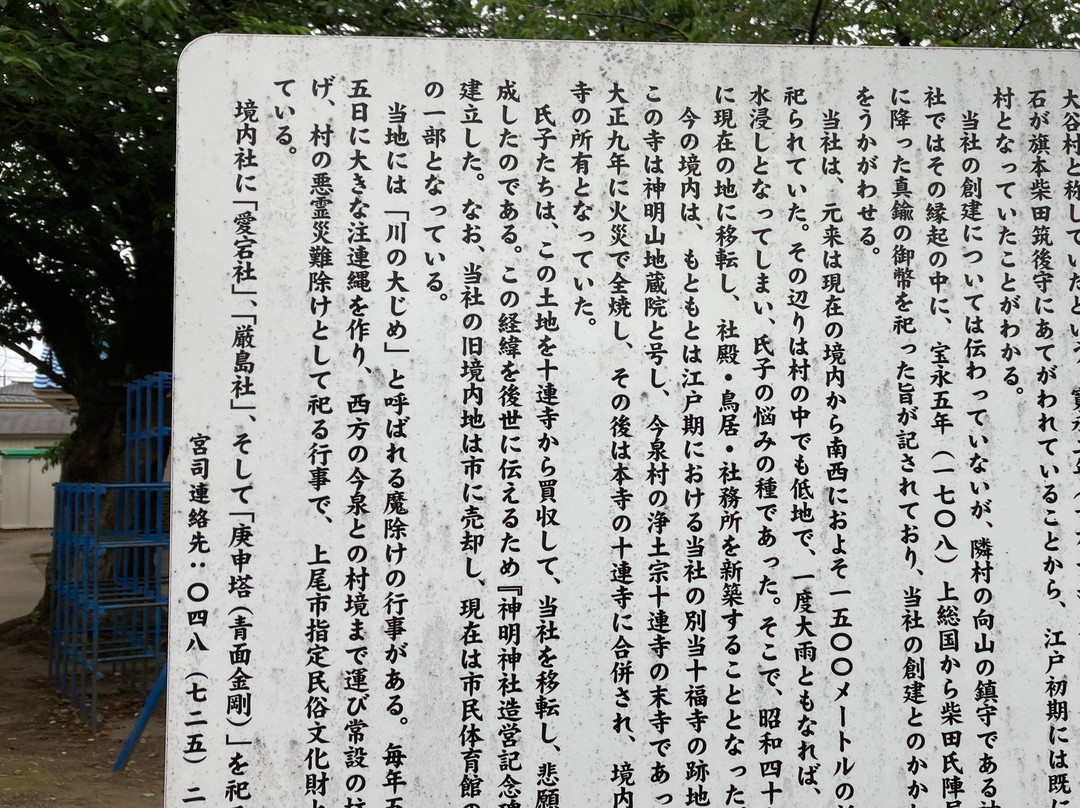 大谷村と称していたという。
石が旗本柴田筑後守にあてがわれていることから、江戸初期には既に
村となっていたことがわかる。
当社の創建については伝わっていないが、隣村の向山の鎮守である
社ではその縁起の中に、宝永五年（一七〇八）上総国から柴田氏陣屋
に降った真鍮の御幣を祀った旨が記されており、当社の創建とのかか
をうかがわせる。
当社は、元来は現在の境内から南西におよそ一五〇〇メートルの
祀られていた。その辺りは村の中でも低地で、一度大雨ともなれば、
水浸しとなってしまい、氏子の悩みの種であった。そこで、昭和四十
に現在の地に移転し、社殿・鳥居・社務所を新築することとなった
今の境内は、もともとは江戸期における当社の別当十福寺の跡地
この寺は神明山地蔵院と号し、今泉村の浄土宗十連寺の末寺であっ
大正九年に火災で全焼し、その後は本寺の十連寺に合併され、境内
寺の所有となっていた。
氏子たちは、この土地を十連寺から買収して、当社を移転し、悲願
成したのである。この経緯を後世に伝えるため『神明神社造営記念碑
建立した。なお、当社の旧境内地は市に売却し、現在は市民体育館の
の一部となっている。
当地には「川の大じめ」と呼ばれる魔除けの行事がある。毎年五
五日に大きな注連縄を作り、西方の今泉との村境まで運び常設の
げ、村の悪霊災難除けとして祀る行事で、上尾市指定民俗文化財と
ている。
境内社に「愛宕社」、「厳島社」、そして「庚申塔（青面金剛）」を祀
宮司連絡先：〇四八（七二五）二